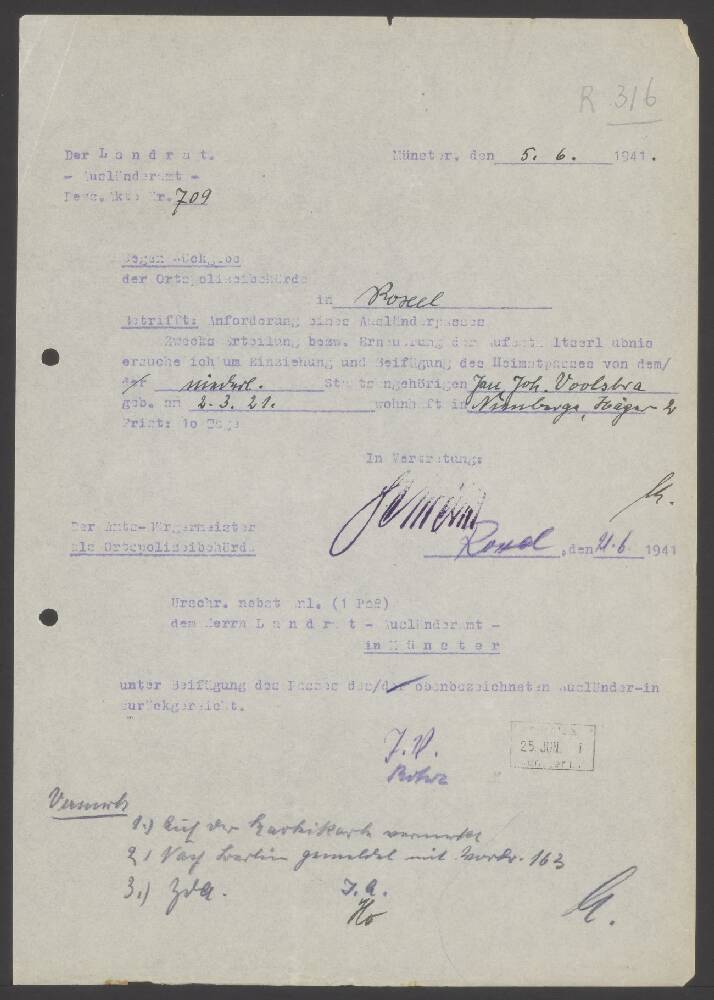 R 316
Der L a n d r a t.
Münster, den 5. 6. 1941.
- Ausländeramt -
Pers. Akte Nr. 709
Gegen Rückgabe
der Ortspolizeibehörde
in Roxel
Betrifft: Anforderung eines Ausländerpasses
Zwecks Erteilung bezw. Erneuerung der Aufenthaltserlaubnis
ersuche ich um Einziehung und Beifügung des Heimatpasses von dem/
der niederl. Staatsangehörigen Jan Joh. Voolstra
geb. am 2.3.21. wohnhaft in Nienberge, Häger 2
Frist: 10 Tage
In Vertretung:
Der Amts-Bürgermeister
als Ortspolizeibehörde
Roxel, den 21.6. 1941
Urschr. nebst Anl. (1 Paß)
dem Herrn L a n d r a t - Ausländeramt -
in M ü n s t e r
unter Beifügung des Passes des/der obenbezeichneten Ausländer-in
zurückgereicht.
I.V.
25. JUNI
Vermerk
1.) Auf der Karteikarte vermerkt
2.) Nach Berlin gemeldet mit Vordr. 163
3.) ZdA.
I.A.